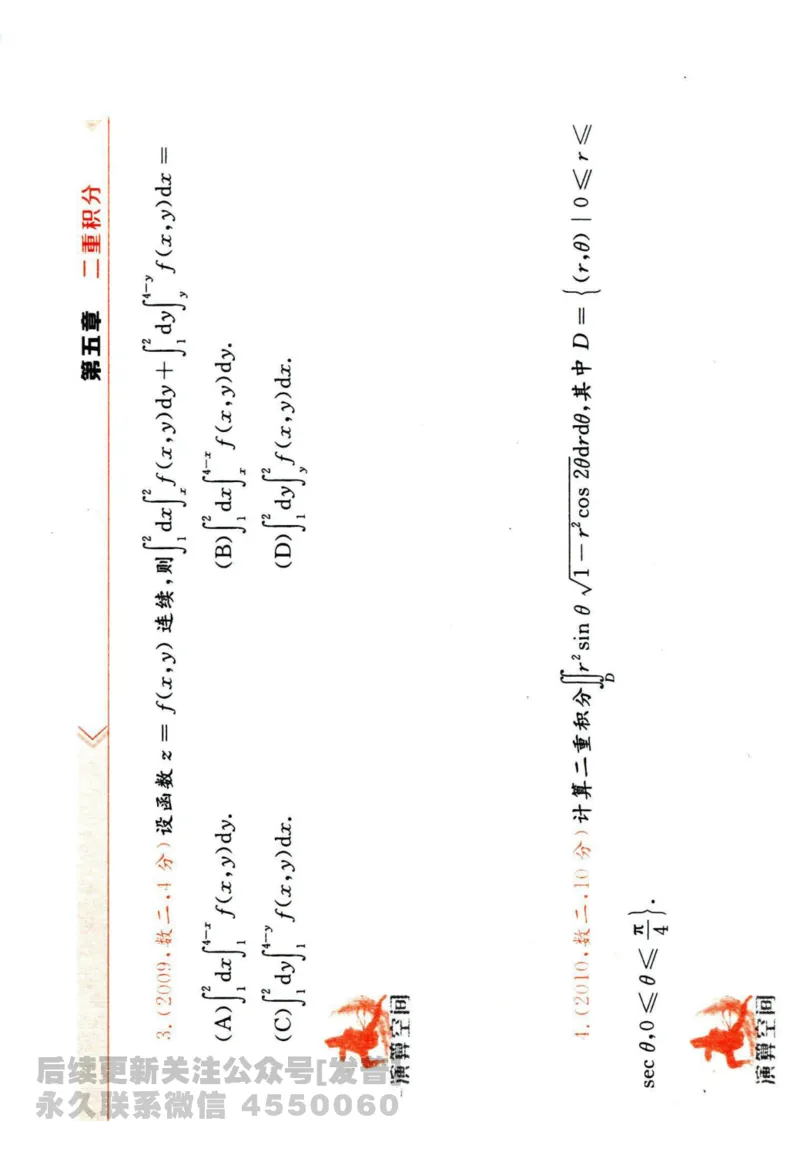 第五章 二重积分
3.(2009,数二,4分)设函数 z = f(x,y) 连续,则∫₁²dx∫ₓ²f(x,y)dy+∫₁²dy∫_y^{4-y}f(x,y)dx =
(A)∫₁²dx∫₁^{4-x}f(x,y)dy. (B)∫₁²dx∫ₓ^{4-x}f(x,y)dy.
(C)∫₁²dy∫₁^{4-y}f(x,y)dx. (D)∫₁²dy∫_y²f(x,y)dx.
演算空间
4.(2010,数二,10分)计算二重积分∬_D r²sin θ √(1-r²cos 2θ)drdθ,其中 D = {(r,θ) | 0 ⩽ r ⩽
sec θ,0 ⩽ θ ⩽ π/4}.
演算空间
后续更新关注公众号[发音
永久联系微信 4550060